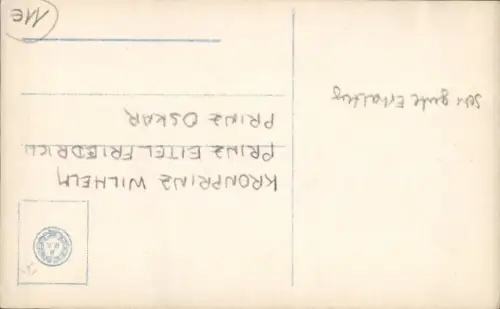 KRONPRINZ WILHELM
PRINZ EITEL FRIEDRICH
PRINZ OSKAR
sehr gute Erhaltung